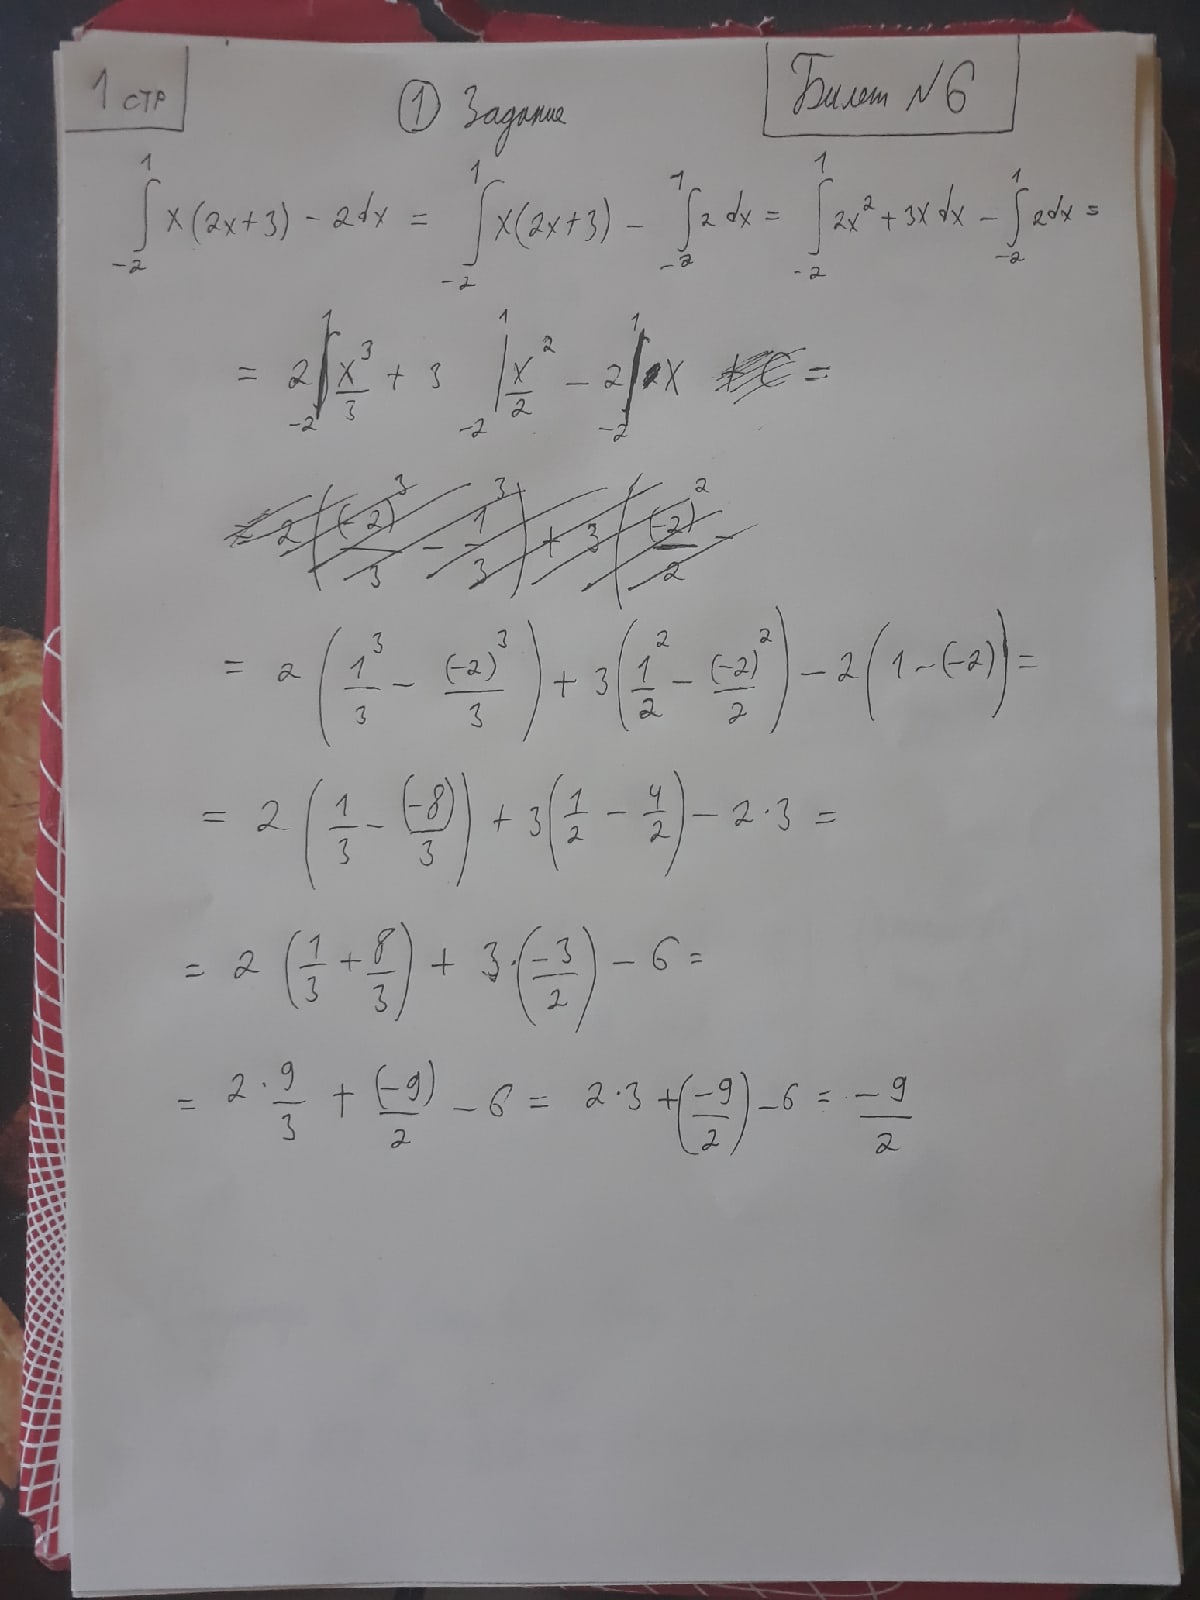 1 стр
① Задание
Билет №6
∫₋₂¹ x(2x+3) − 2dx = ∫₋₂¹ x(2x+3) − ∫₋₂¹ 2 dx = ∫₋₂¹ 2x² + 3x dx − ∫₋₂¹ 2dx =
= 2 |₋₂¹ x³/3 + 3 |₋₂¹ x²/2 − 2 |₋₂¹ x =
= 2 ( (-2)³/3 − 1³/3 ) + 3 ( (-2)²/2 −
= 2 ( 1³/3 − (-2)³/3 ) + 3 ( 1²/2 − (-2)²/2 ) − 2 ( 1 − (-2) ) =
= 2 ( 1/3 − (-8)/3 ) + 3 ( 1/2 − 4/2 ) − 2·3 =
= 2 ( 1/3 + 8/3 ) + 3·( -3/2 ) − 6 =
= 2 · 9/3 + (-9)/2 − 6 = 2·3 + ( -9/2 ) − 6 = -9/2